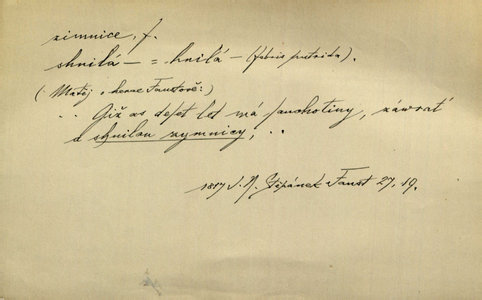 zimnice, f.
shnilá — = hnilá — (febris putrida).
(Matěj o herce Faustově:)
.. Giž as deset let má sauchotiny, záwrať
a shnilau zymnicy, ..
1817 J. N. Štěpánek Faust 27, 19.